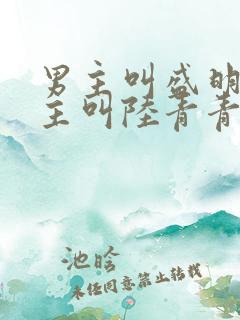 男主叫盛明
主叫陸青青
池晗
未经同意禁止转载